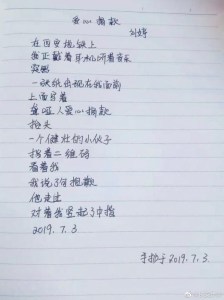 爱心捐款
刘傅
在西安地铁上
我正戴着耳机听着音乐
突然
一张纸出现在我面前
上面写着
聋哑人爱心捐款
抬头
一个健壮的小伙子
拐着二维码
看着我
我说了句抱歉
他走过
对着我竖起了中指
2019.7.3
手抄于2019.7.3.